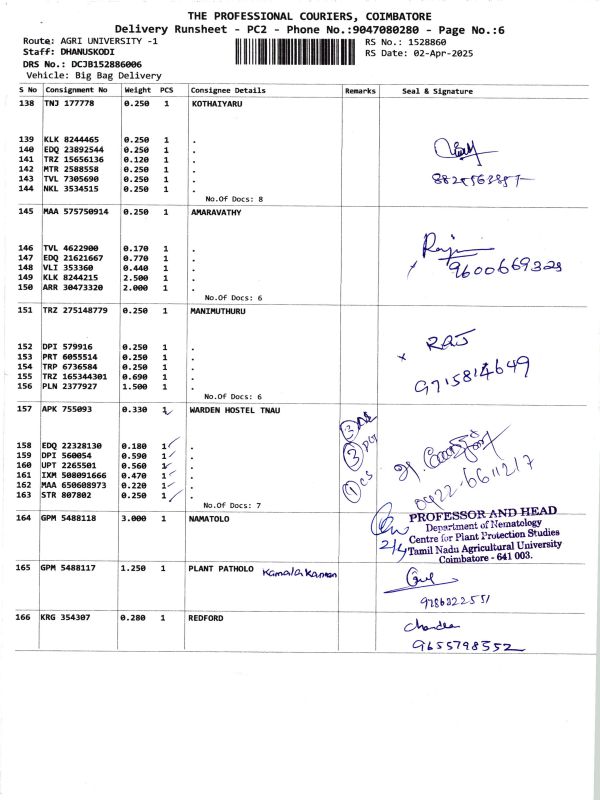 THE PROFESSIONAL COURIERS, COIMBATORE
Delivery Runsheet - PC2 - Phone No.:9047080280 - Page No.:6
Route: AGRI UNIVERSITY -1 RS No.: 1528860
Staff: DHANUSKODI RS Date: 02-Apr-2025
DRS No.: DCJB152886006
Vehicle: Big Bag Delivery
S No Consignment No Weight PCS Consignee Details Remarks Seal & Signature
138 TNJ 177778 0.250 1 KOTHAIYARU
139 KLK 8244465 0.250 1 .
140 EDQ 23892544 0.250 1 .
141 TRZ 15656136 0.120 1 .
142 MTR 2588558 0.250 1 .
143 TVL 7305690 0.250 1 .
144 NKL 3534515 0.250 1 .
No.Of Docs: 8
145 MAA 575750914 0.250 1 AMARAVATHY
146 TVL 4622900 0.170 1 .
147 EDQ 21621667 0.770 1 .
148 VLI 353360 0.440 1 .
149 KLK 8244215 2.500 1 .
150 ARR 30473320 2.000 1 .
9600669329
No.Of Docs: 6
151 TRZ 275148779 0.250 1 MANIMUTHURU
152 DPI 579916 0.250 1 .
RAJ
153 PRT 6055514 0.250 1 .
154 TRP 6736584 0.250 1 .
155 TRZ 165344301 0.690 1 .
156 PLN 2377927 1.500 1 .
9715814649
No.Of Docs: 6
157 APK 755093 0.330 1 WARDEN HOSTEL TNAU
158 EDQ 22328130 0.180 1 .
159 DPI 560054 0.590 1 .
160 UPT 2265501 0.560 1 .
161 IXM 508091666 0.470 1 .
162 MAA 650608973 0.220 1 .
163 STR 807802 0.250 1 .
0422-6611217
No.Of Docs: 7
164 GPM 5488118 3.000 1 NAMATOLO
PROFESSOR AND HEAD
Department of Nematology
Centre for Plant Protection Studies
2/4 Tamil Nadu Agricultural University
Coimbatore - 641 003.
165 GPM 5488117 1.250 1 PLANT PATHOLO Kamalakannan
9786322551
166 KRG 354307 0.280 1 REDFORD
Chandra
9655798552